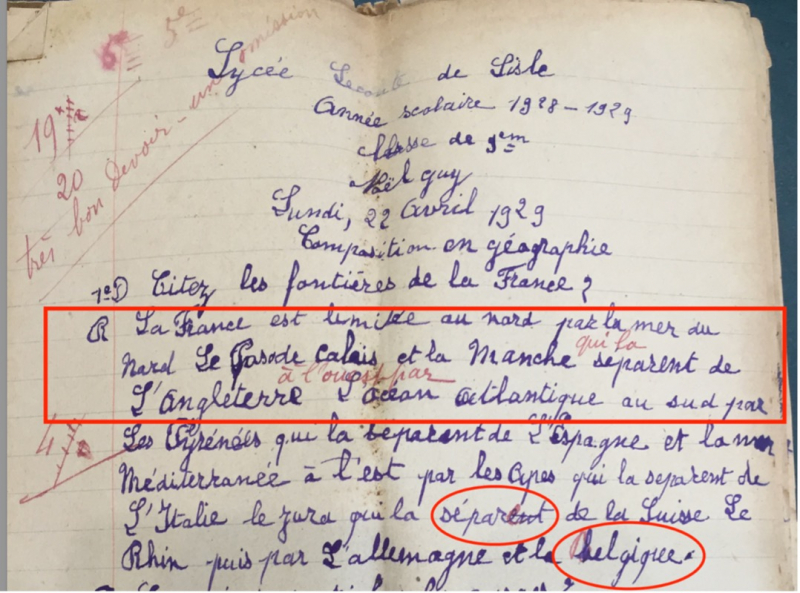 6e 5e
Lycée Leconte de Lisle
Année scolaire 1928-1929
Classe de 5em
19
20
très bon devoir - un omission
Noël guy
Lundi, 22 Avril 1929
Composition en géographie
1º D Citez les fontiéres de la France ?
R La France est limitée au nord par la mer du
qui la
Nord Le Pas de Calais et la Manche séparent de
à l'ouest par
L'Angleterre L'océan Atlantique au sud par
4
Les Pyrénées qui la séparent de L'Espagne et la mer
Méditerranée à l'est par les Alpes qui la separent de
L'Italie le jura qui la séparent de la Suisse Le
Rhin puis par L'allemagne et la belgique.